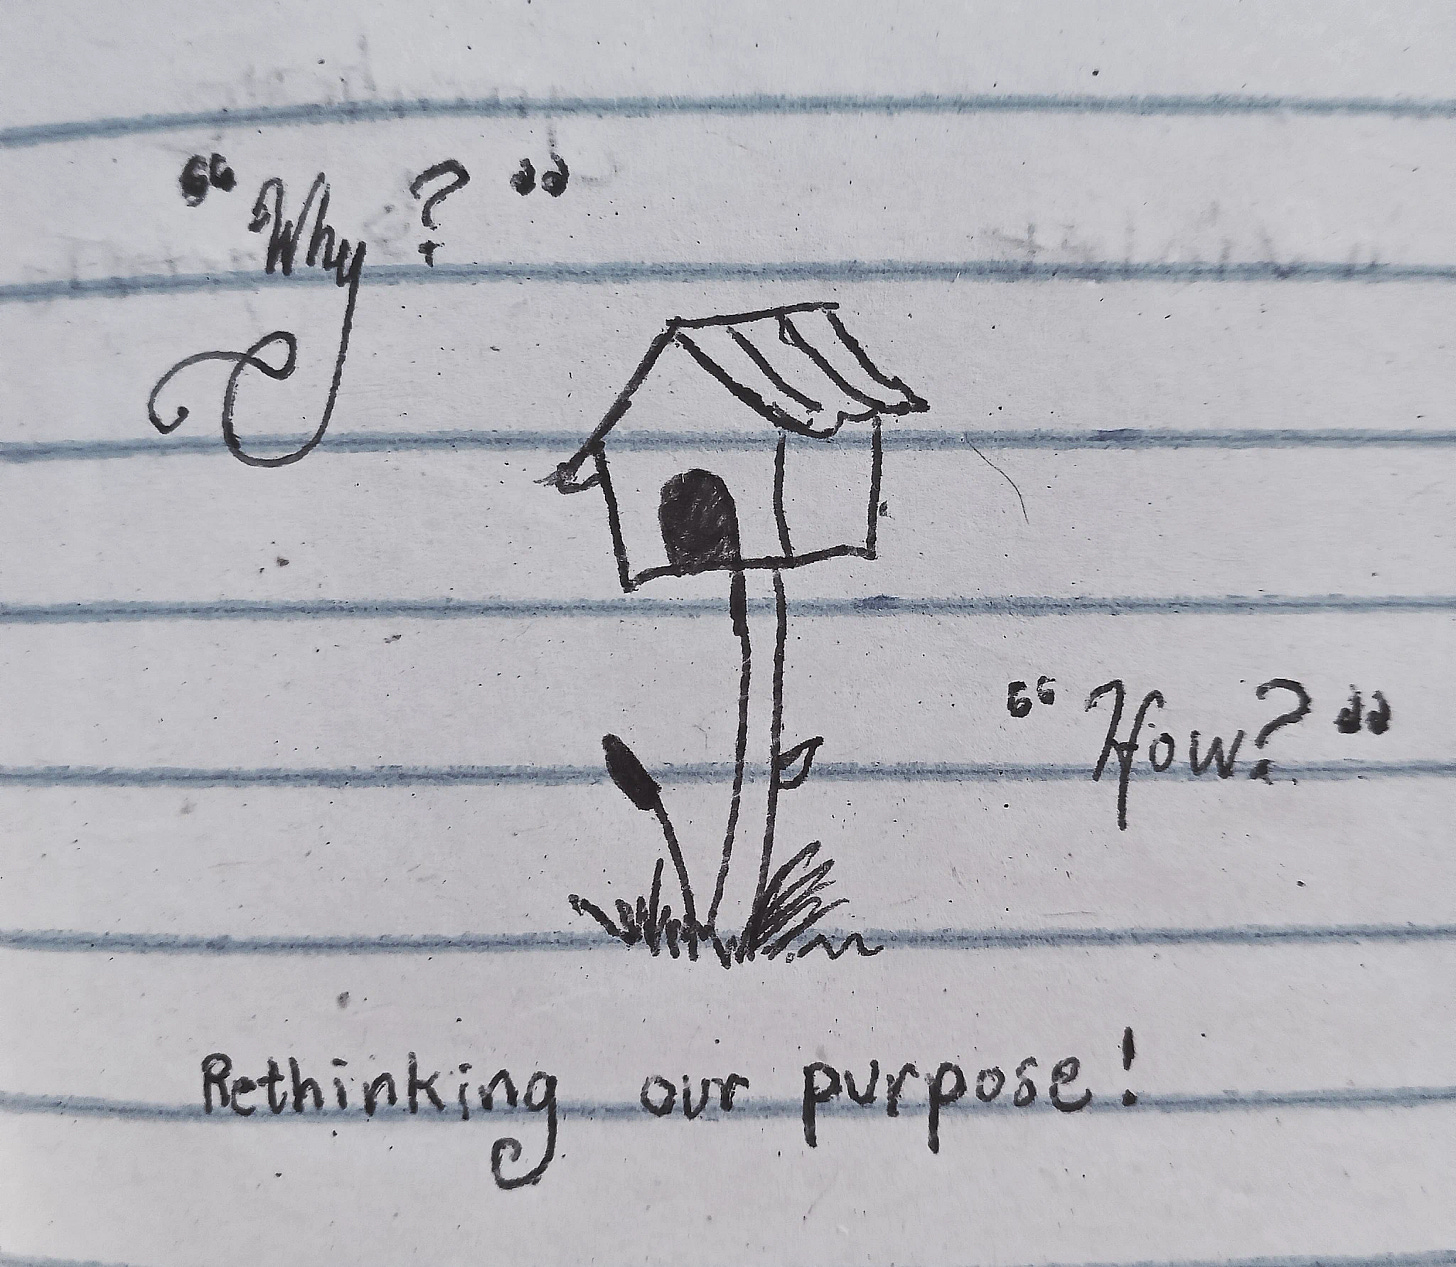 “Why?”
“How?”
Rethinking our purpose!